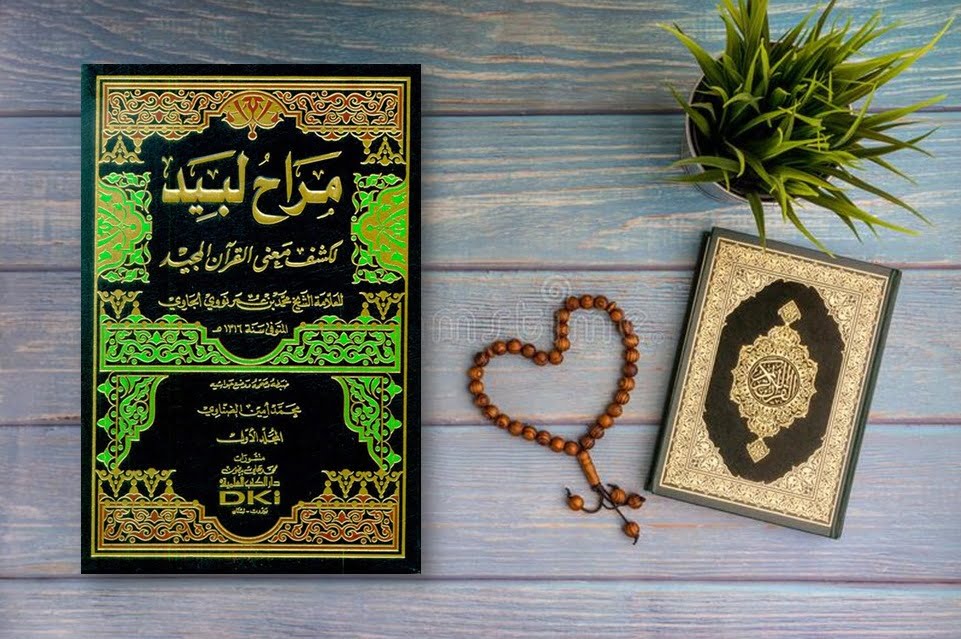 مَرَاحُ لَبِيَد
لكشف مَعنى القرآن المجيد
للعلامة الشيخ محمد بن عمر نووي الجاوي
المتوفى سنة ١٣١٦ هـ
ضبطه وصححه ووضع حواشيه
محمد أمين الضناوي
المجلد الأول
منشورات
محمد علي بيضون
دار الكتب العلمية
DKi
بيروت - لبنان
القرآن الكريم